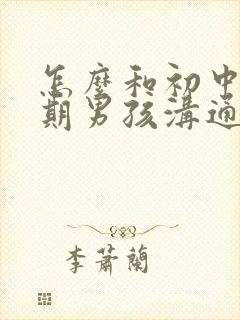 怎麼和初中
期男孩溝通
李蕭蘭